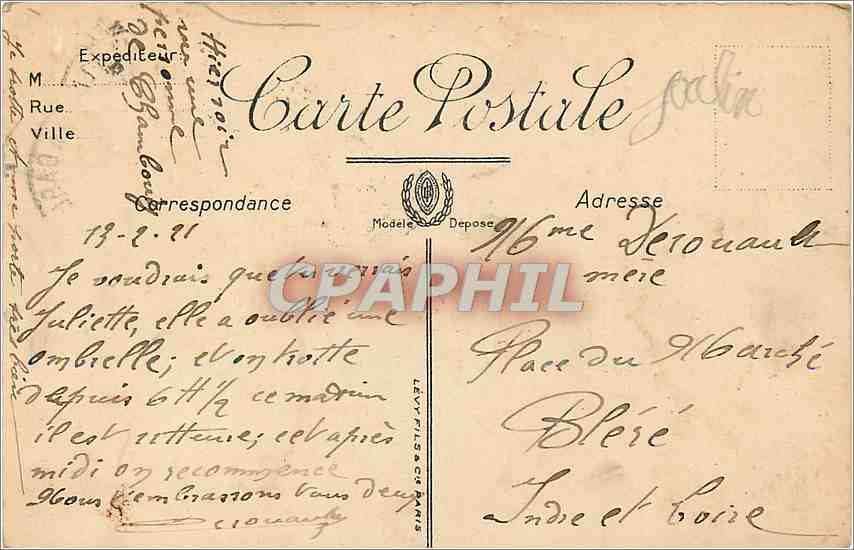 Expéditeur:
M
Rue
Ville
Hier soir
vu une
personne
de Chambourg
Carte Postale
Correspondance
Modèle Déposé
Adresse
13-2-21
Je voudrais que tu verrais
Juliette, elle a oublié une
ombrelle; et on trotte
depuis 6H ½ ce matin
il est 11 heure; cet après
midi on recommence
Nous t'embrassons tous deux
Derouault
Je trotte et me porte très bien
LÉVY FILS & Cie PARIS
Mme Derouault
mère
Place du Marché
Bléré
Indre et Loire
CPAPHIL